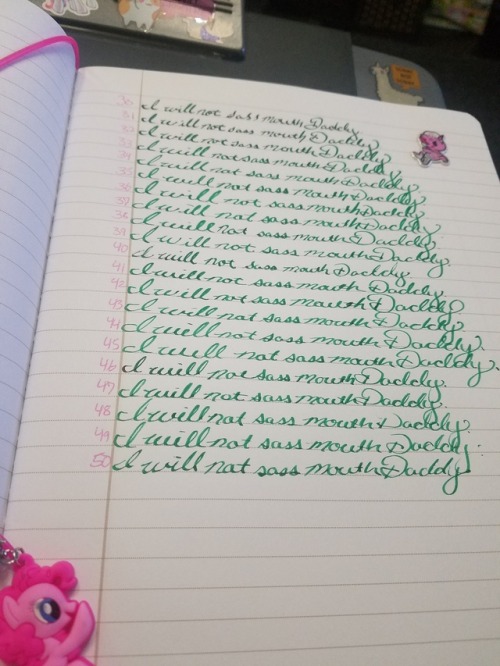 30 I will not sass mouth Daddy.
31 I will not sass mouth Daddy.
32 I will not sass mouth Daddy.
33 I will not sass mouth Daddy.
34 I will not sass mouth Daddy.
35 I will not sass mouth Daddy.
36 I will not sass mouth Daddy.
37 I will not sass mouth Daddy.
38 I will not sass mouth Daddy.
39 I will not sass mouth Daddy.
40 I will not sass mouth Daddy.
41 I will not sass mouth Daddy.
42 I will not sass mouth Daddy.
43 I will not sass mouth Daddy.
44 I will not sass mouth Daddy.
45 I will not sass mouth Daddy.
46 I will not sass mouth Daddy.
47 I will not sass mouth Daddy.
48 I will not sass mouth Daddy.
49 I will not sass mouth Daddy.
50 I will not sass mouth Daddy.